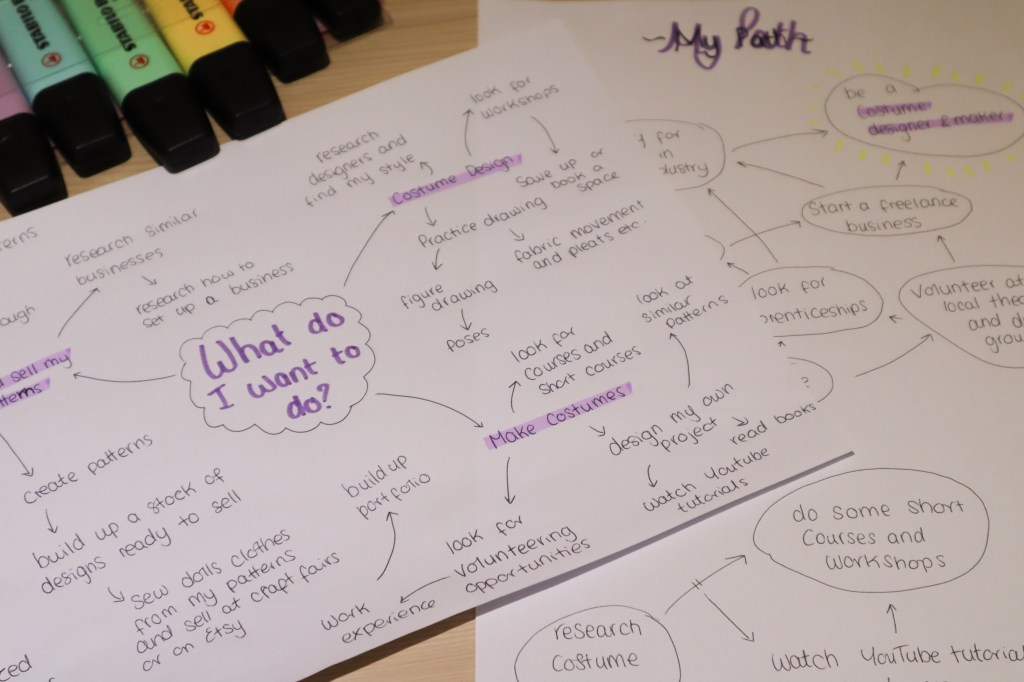 STABILO
STABILO
STABILO
research similar
businesses
research how to
set up a business
sell my
Create patterns
build up a stock of
designs ready to sell
sew dolls clothes
from my patterns
and sell at crapt fairs
or on Etsy
What do
I want to
do?
Costume Design
research
designers and
find my style
look for
workshops
Save up or
book a
space
Practice drawing
fabric movement
and pleats etc.
figure
drawing
poses
Make Costumes
look for
courses and
short courses
look at
similar
patterns
design my own
project
read books
watch Youtube
tutorials
look for
volunteering
opportunities
work
experience
build up
portfolio
~My Path
be a
costume
designer & maker
for
in
Start a freelance
business
look for
Volunteer at
local
and
?
do some short
Courses and
workshops
research
Costume
Watch YouTube